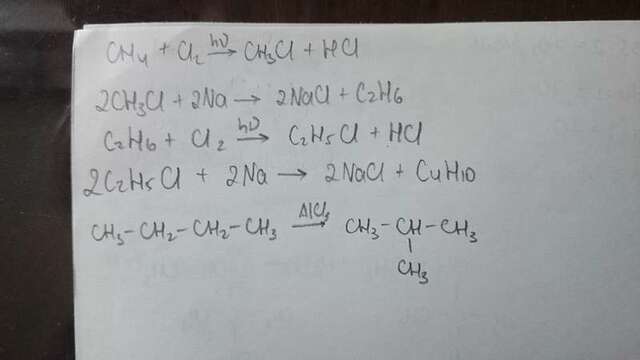 CH₄ + Cl₂ hν→ CH₃Cl + HCl
2CH₃Cl + 2Na → 2NaCl + C₂H₆
C₂H₆ + Cl₂ hν→ C₂H₅Cl + HCl
2C₂H₅Cl + 2Na → 2NaCl + C₄H₁₀
CH₃-CH₂-CH₂-CH₃ AlCl₃→ CH₃-CH-CH₃
|
CH₃